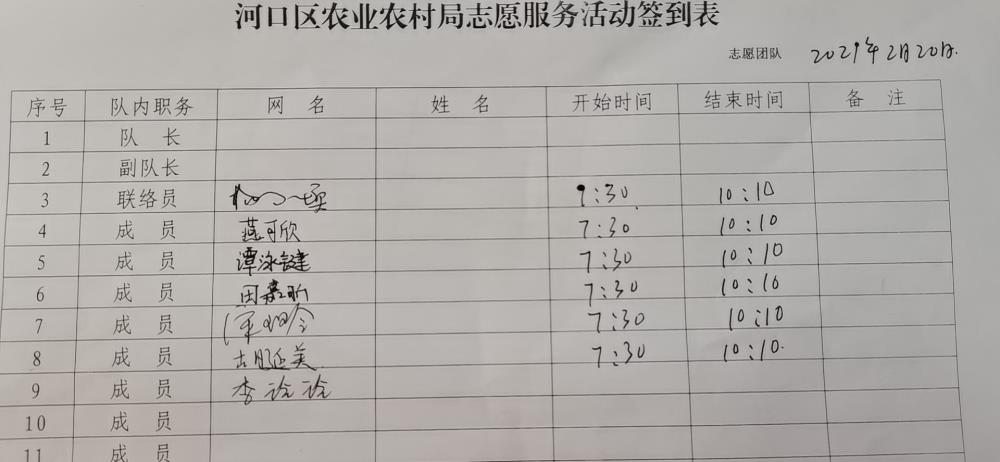 河口区农业农村局志愿服务活动签到表
志愿团队 2021年2月20日.
序号 队内职务 网 名 姓 名 开始时间 结束时间 备 注
1 队 长
2 副队长
3 联络员 9:30 10:10
4 成 员 燕可欣 7:30 10:10
5 成 员 谭泳键 7:30 10:10
6 成 员 田嘉昕 7:30 10:10
7 成 员 7:30 10:10
8 成 员 7:30 10:10
9 成 员 李论论
10 成 员
11 成 员